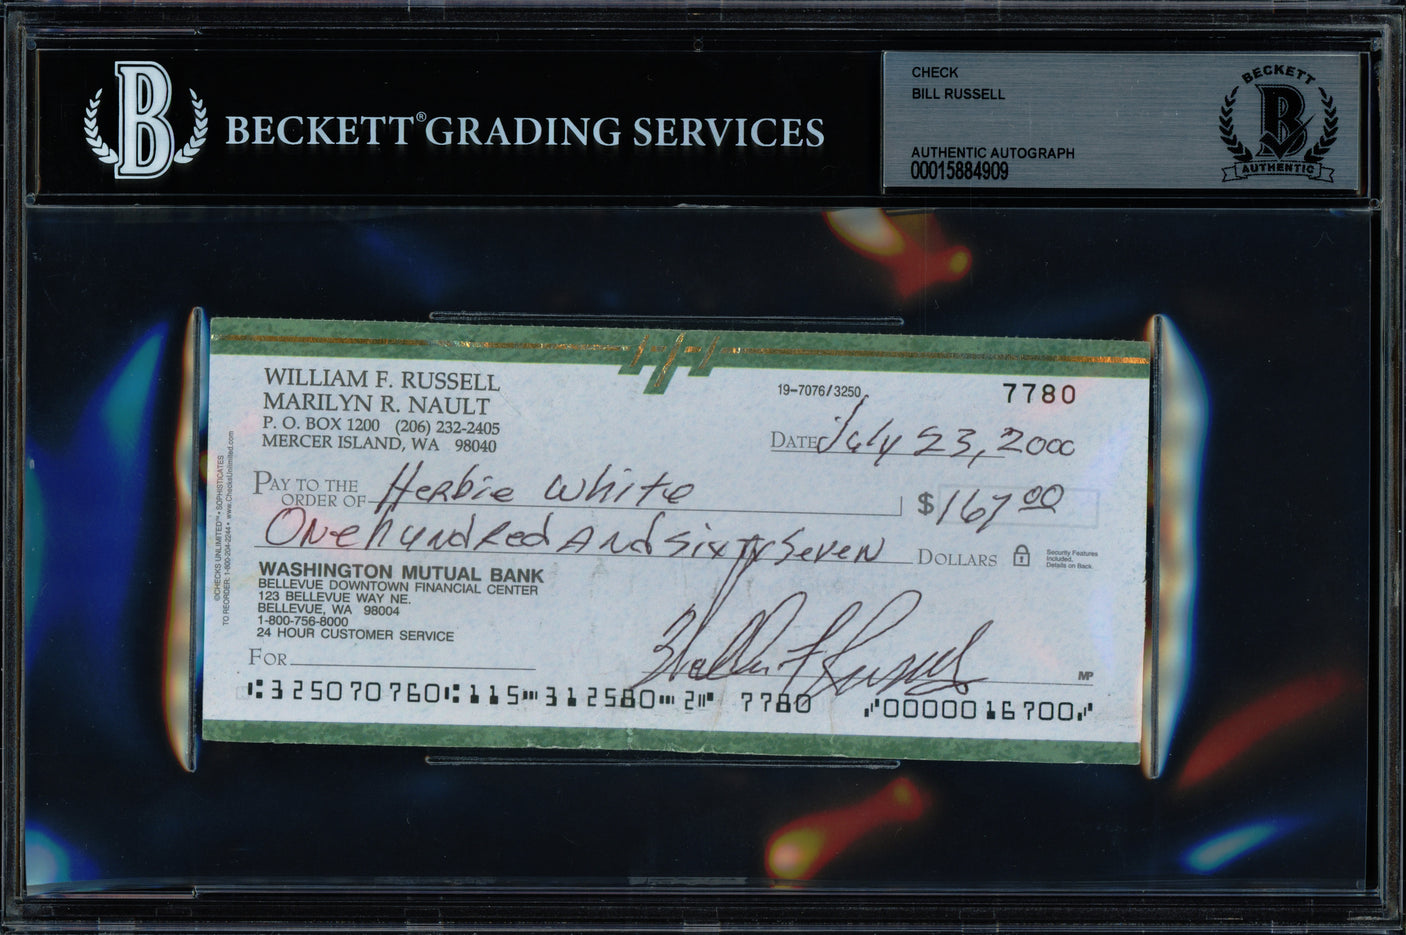 BECKETT® GRADING SERVICES
CHECK
BILL RUSSELL
AUTHENTIC AUTOGRAPH
00015884909
BECKETT
B
AUTHENTIC
B
WILLIAM F. RUSSELL
MARILYN R. NAULT
P. O. BOX 1200 (206) 232-2405
MERCER ISLAND, WA 98040
19-7076/3250
7780
DATE July 23, 2000
PAY TO THE
ORDER OF Herbie White
$ 167 00
One hundred And sixty seven DOLLARS
Security Features
Included.
Details on Back.
©CHECKS UNLIMITED™ • SOPHISTICATES
TO REORDER: 1-800-204-2244 • www.ChecksUnlimited.com
WASHINGTON MUTUAL BANK
BELLEVUE DOWNTOWN FINANCIAL CENTER
123 BELLEVUE WAY NE.
BELLEVUE, WA 98004
1-800-756-8000
24 HOUR CUSTOMER SERVICE
FOR
William F Russell
MP
⑆325070760⑆115⑉312580⑉2⑈ 7780 ⑇0000016700⑇